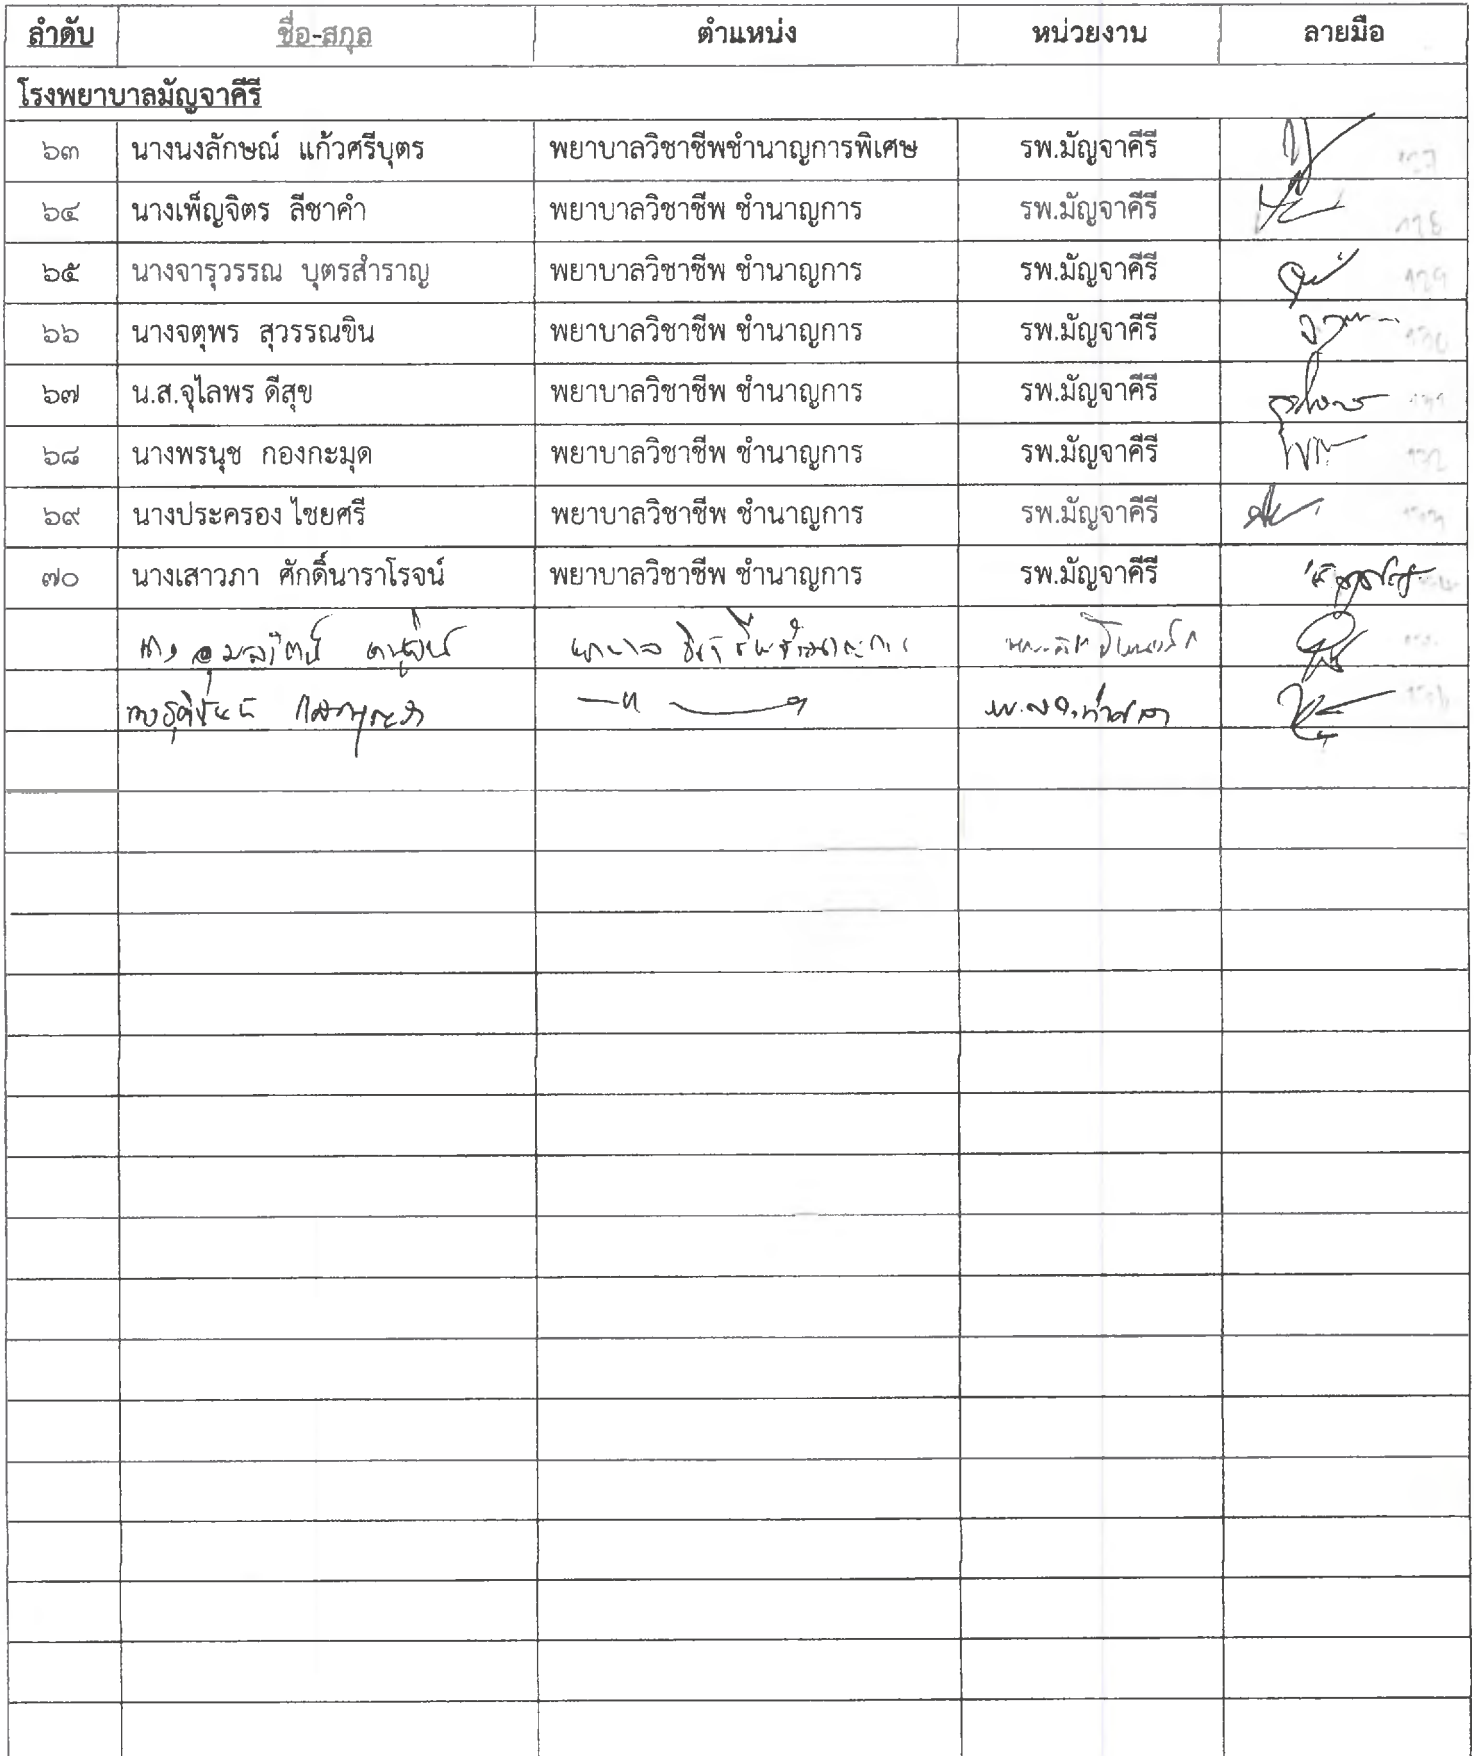 ลำดับ ชื่อ-สกุล ตำแหน่ง หน่วยงาน ลายมือ
โรงพยาบาลมัญจาคีรี
๖๓ นางนงลักษณ์ แก้วศรีบุตร พยาบาลวิชาชีพชำนาญการพิเศษ รพ.มัญจาคีรี
๖๔ นางเพ็ญจิตร ลีชาคำ พยาบาลวิชาชีพ ชำนาญการ รพ.มัญจาคีรี
๖๕ นางจารุวรรณ บุตรสำราญ พยาบาลวิชาชีพ ชำนาญการ รพ.มัญจาคีรี 129
๖๖ นางจตุพร สุวรรณขิน พยาบาลวิชาชีพ ชำนาญการ รพ.มัญจาคีรี 130
๖๗ น.ส.จุไลพร ดีสุข พยาบาลวิชาชีพ ชำนาญการ รพ.มัญจาคีรี 131
๖๘ นางพรนุช กองกะมุด พยาบาลวิชาชีพ ชำนาญการ รพ.มัญจาคีรี 132
๖๙ นางประครอง ไชยศรี พยาบาลวิชาชีพ ชำนาญการ รพ.มัญจาคีรี
๗๐ นางเสาวภา ศักดิ์นาราโรจน์ พยาบาลวิชาชีพ ชำนาญการ รพ.มัญจาคีรี
พยาบาลวิชาชีพชำนาญการ